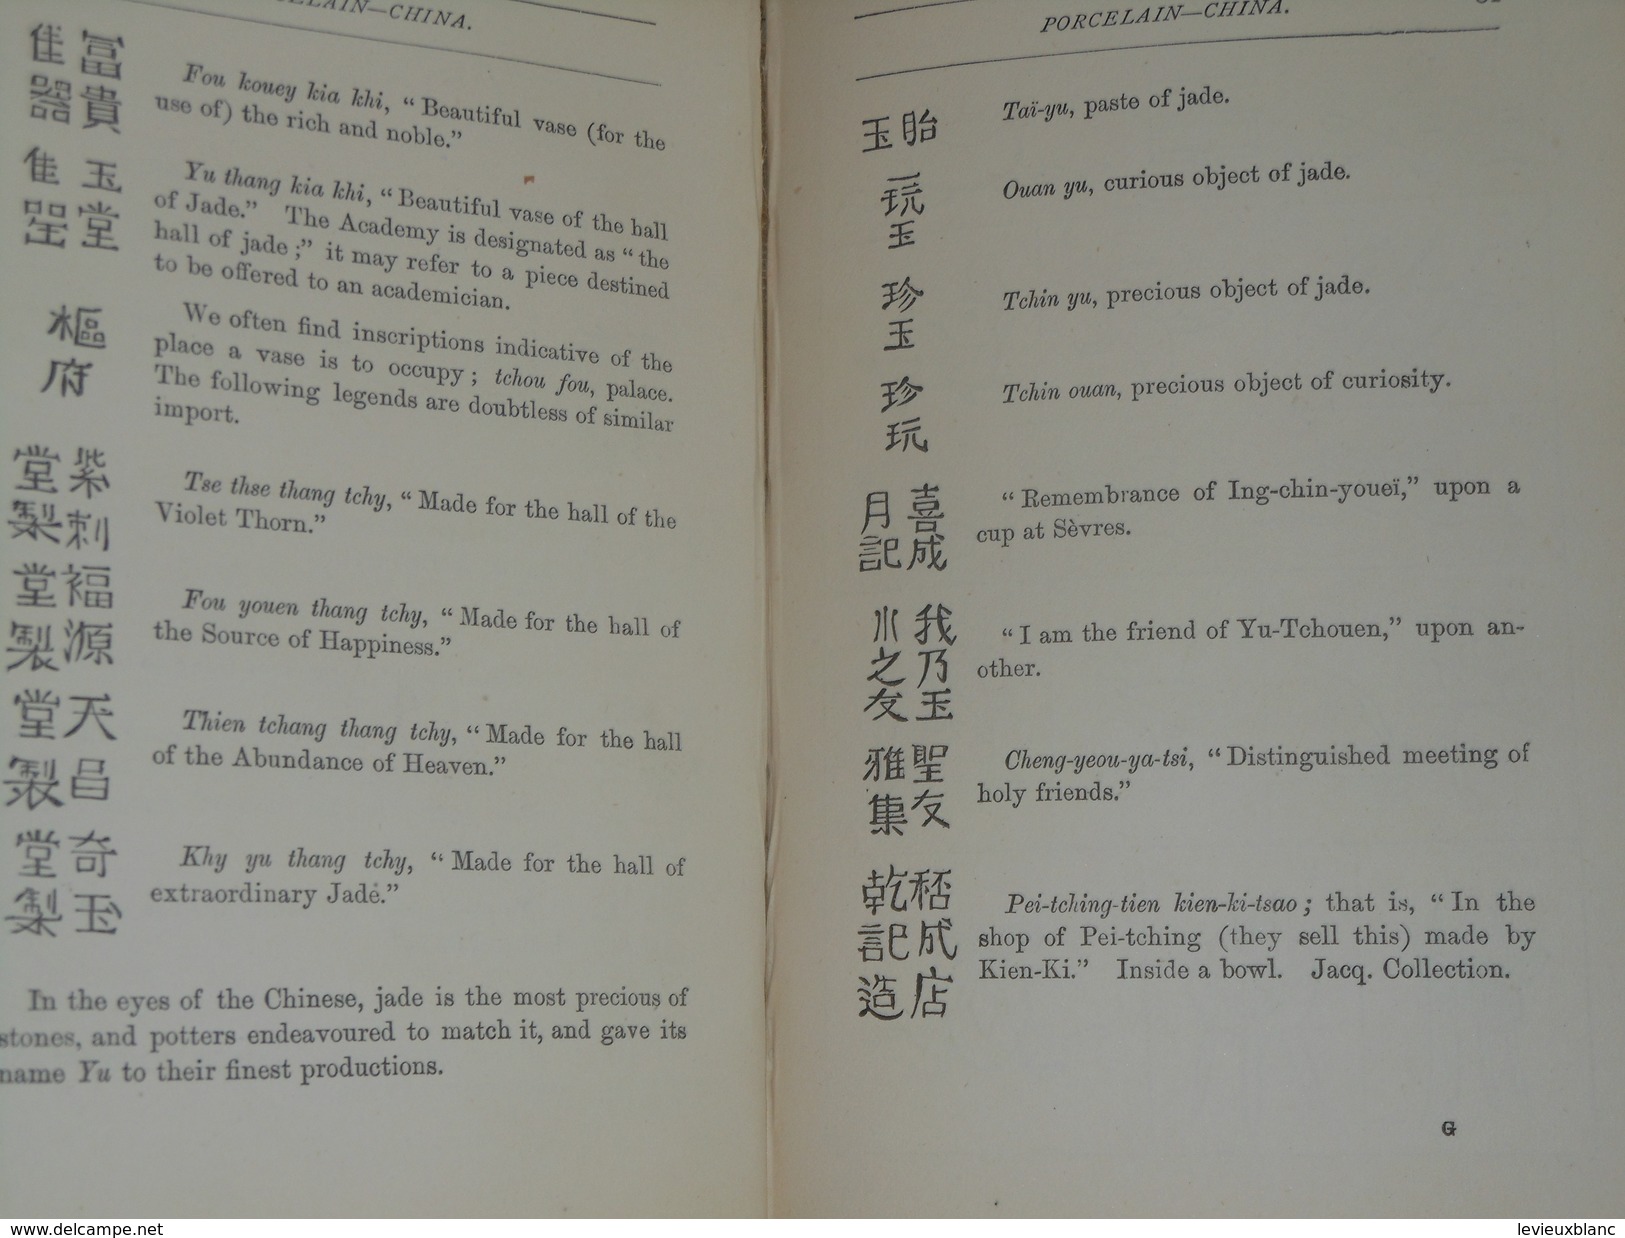 PORCELAIN—CHINA.
富貴
佳器
Fou kouey kia khi, “Beautiful vase (for the
use of) the rich and noble.”
玉堂
佳
Yu thang kia khi, “Beautiful vase of the hall
of Jade.” The Academy is designated as “the
hall of jade;” it may refer to a piece destined
to be offered to an academician.
樞府
We often find inscriptions indicative of the
place a vase is to occupy; tchou fou, palace.
The following legends are doubtless of similar
import.
紫刺
堂製
Tse thse thang tchy, “Made for the hall of the
Violet Thorn.”
福源
堂製
Fou youen thang tchy, “Made for the hall of
the Source of Happiness.”
天昌
堂製
Thien tchang thang tchy, “Made for the hall
of the Abundance of Heaven.”
奇玉
堂製
Khy yu thang tchy, “Made for the hall of
extraordinary Jade.”
In the eyes of the Chinese, jade is the most precious of
stones, and potters endeavoured to match it, and gave its
name Yu to their finest productions.
PORCELAIN—CHINA.
玉
Taï-yu, paste of jade.
玩玉
Ouan yu, curious object of jade.
珍玉
Tchin yu, precious object of jade.
珍玩
Tchin ouan, precious object of curiosity.
喜成
月記
“Remembrance of Ing-chin-youeï,” upon a
cup at Sèvres.
我乃玉
川之友
“I am the friend of Yu-Tchouen,” upon an-
other.
聖友
雅集
Cheng-yeou-ya-tsi, “Distinguished meeting of
holy friends.”
成店
乾記造
Pei-tching-tien kien-ki-tsao; that is, “In the
shop of Pei-tching (they sell this) made by
Kien-Ki.” Inside a bowl. Jacq. Collection.
G
www.delcampe.net
levieuxblanc